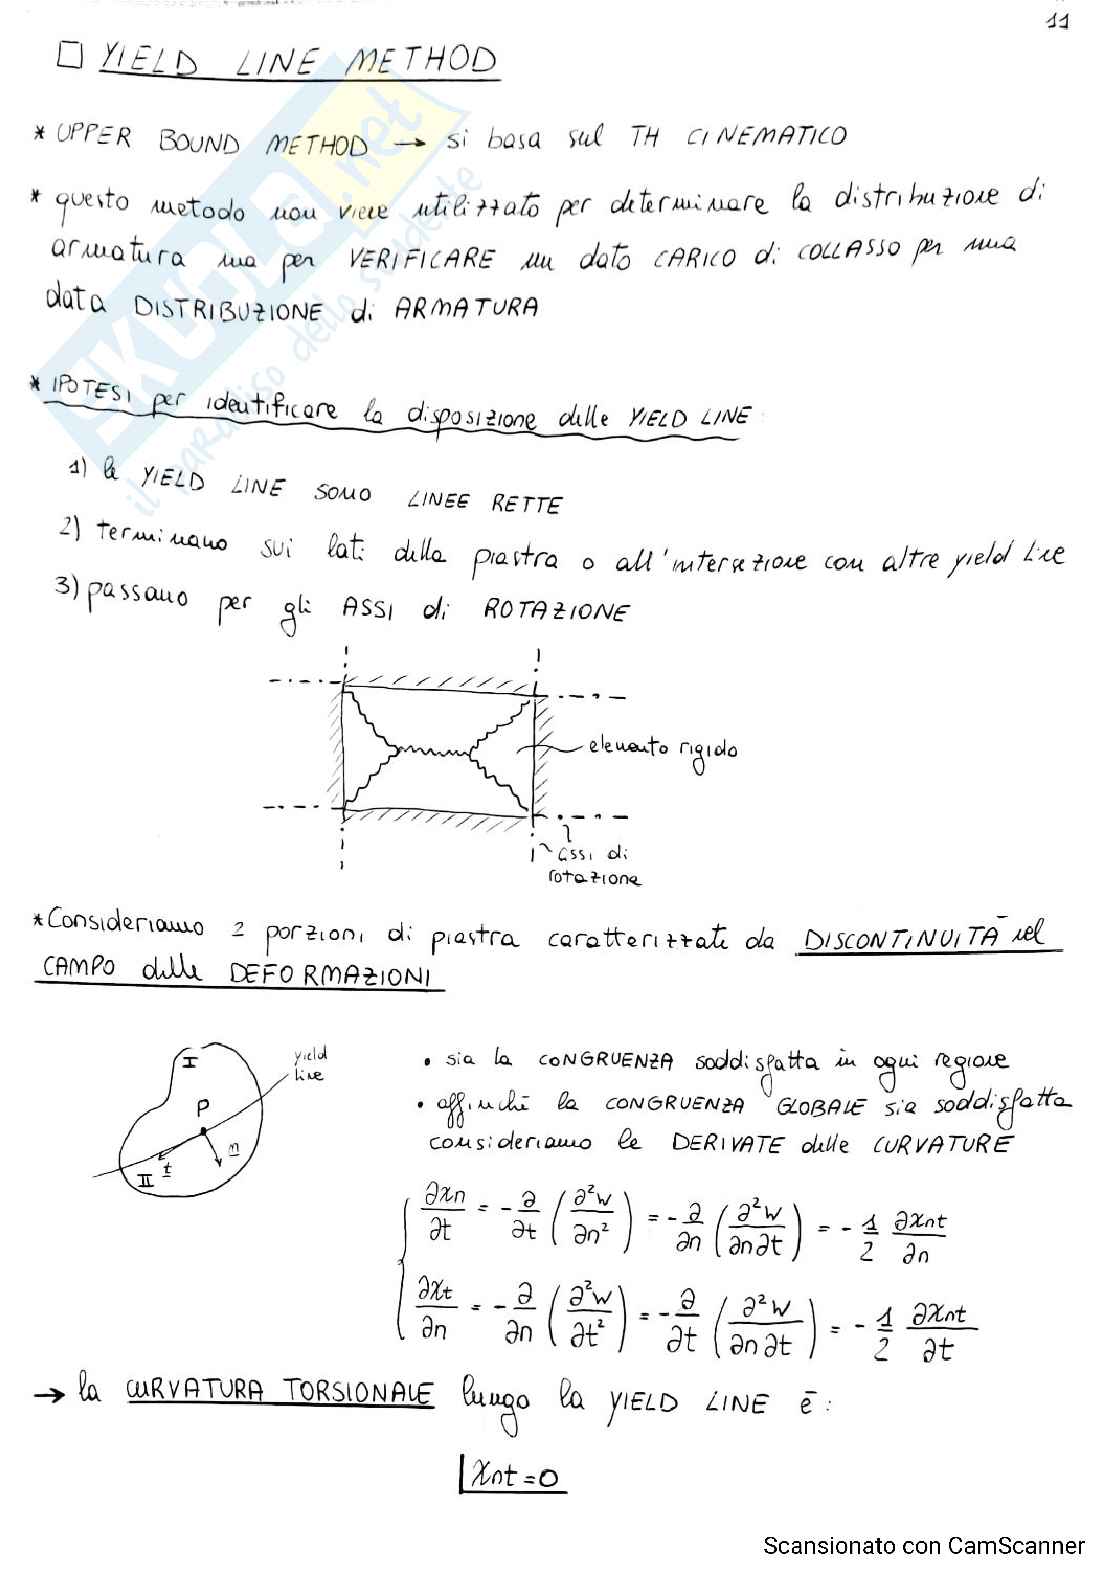 11
□ YIELD LINE METHOD
* UPPER BOUND METHOD → si basa sul TH CINEMATICO
* questo metodo non viene utilizzato per determinare la distribuzione di
armatura ma per VERIFICARE un dato CARICO di COLLASSO per una
data DISTRIBUZIONE di ARMATURA
* IPOTESI per identificare la disposizione delle YIELD LINE:
1) le YIELD LINE sono LINEE RETTE
2) terminano sui lati della piastra o all'intersezione con altre yield line
3) passano per gli ASSI di ROTAZIONE
elemento rigido
assi di
rotazione
* Consideriamo 2 porzioni di piastra caratterizzate da DISCONTINUITÀ nel
CAMPO delle DEFORMAZIONI
I
yield
line
P
n
t
II
• sia la CONGRUENZA soddisfatta in ogni regione
• affinché la CONGRUENZA GLOBALE sia soddisfatta
consideriamo le DERIVATE delle CURVATURE
∂χn/∂t = - ∂/∂t (∂²w/∂n²) = - ∂/∂n (∂²w/∂n∂t) = - 1/2 ∂χnt/∂n
∂χt/∂n = - ∂/∂n (∂²w/∂t²) = - ∂/∂t (∂²w/∂n∂t) = - 1/2 ∂χnt/∂t
→ la CURVATURA TORSIONALE lungo la YIELD LINE è:
χnt = 0
SKUOLA.net
il paradiso dello studente
Scansionato con CamScanner